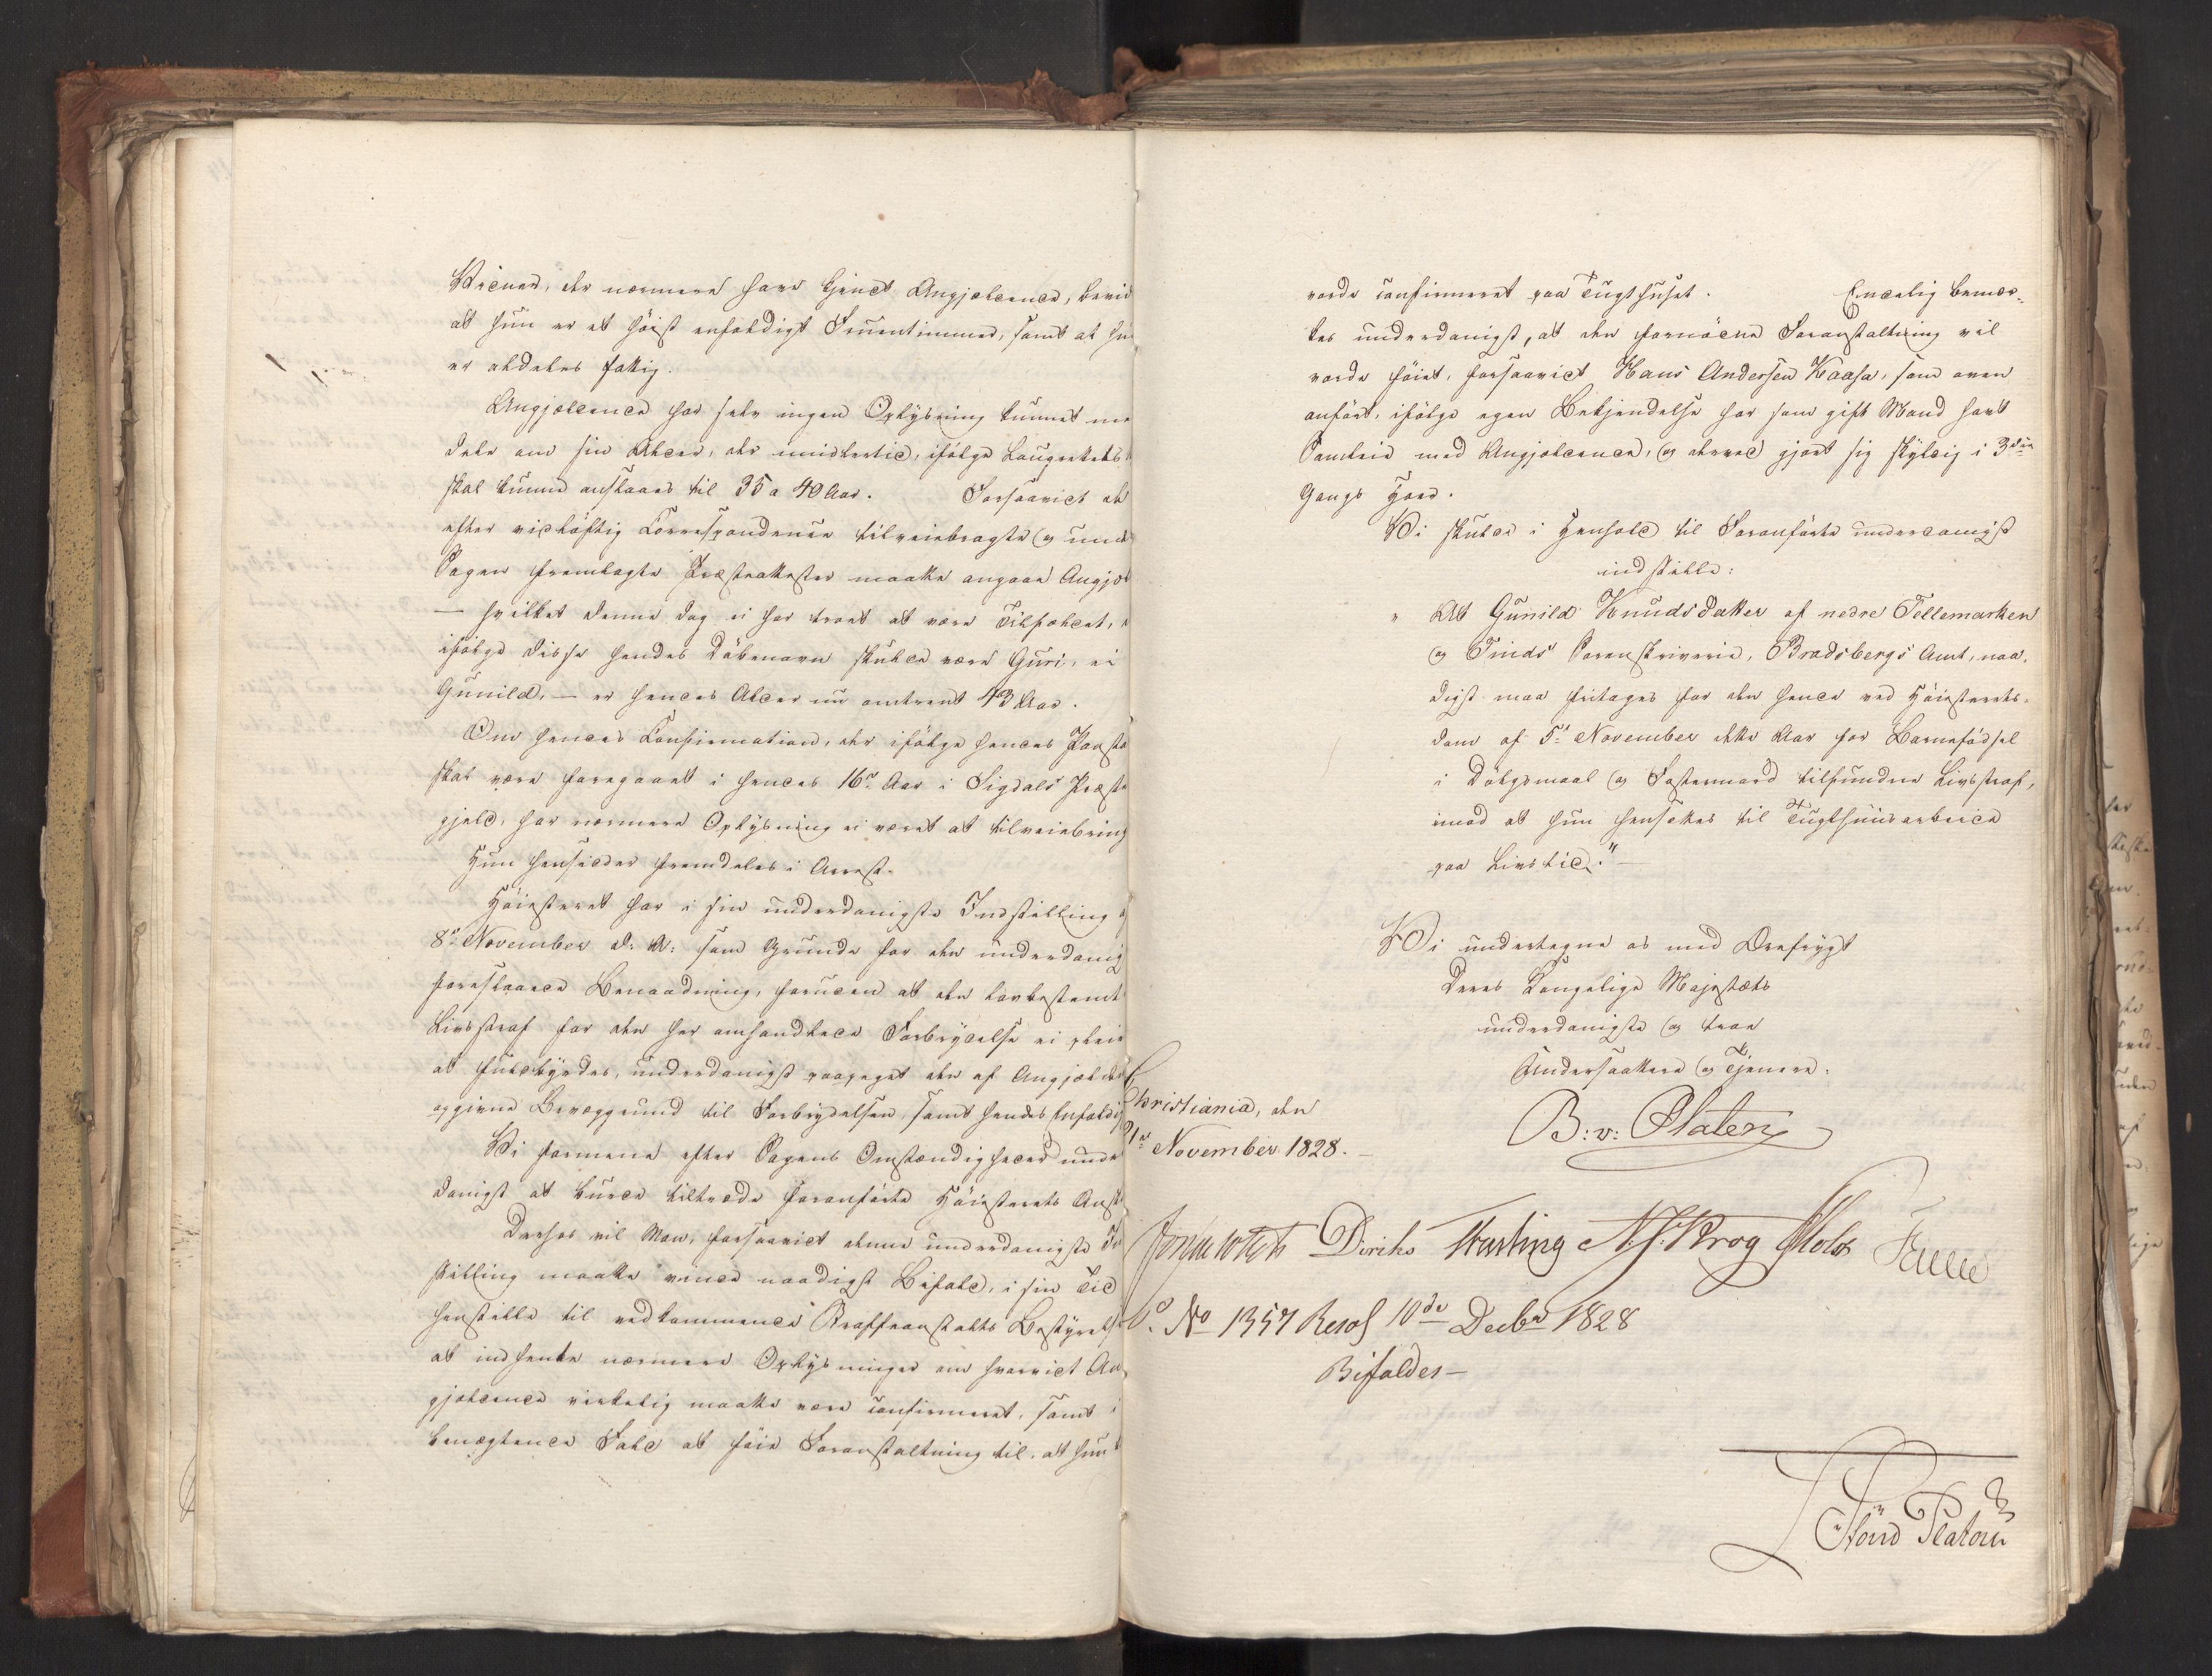 Vidner, der nærmere have kjendt Angjældende, bevid
at hun er et höist enfoldigt Fruentimmer, samt at hu
er aldeles fattig.
Angjældende har selv ingen Oplysning kunnet med
dele om sin Alder, der imidlertid, ifölge Laugrettets
skal kunne anslaaes til 35 a 40 Aar. Forsaavidt de
efter vidtløftig Correspondence tilveiebragte og under
Sagen fremlagte Præsteattester maatte angaae Angjæl
— hvilket denne dog ei har troet at være Tilfældet,
ifölge disse hendes Döbenavn skulde være Guri, ei
Gunild, — er hendes Alder nu omtrent 43 Aar.
Om hendes Confirmation, der ifölge hendes Paasta
skal være foregaaet i hendes 16de Aar i Sigdals Præste
gjeld, har nærmere Oplysning ei været at tilveiebring
Hun hensidder fremdeles i Arrest.
Höiesteret har i sin underdanigste Indstilling af
8de November d: A: som Grunde for den underdanig
foreslaaede Benaadning, foruden at den lovbestemte
Livsstraf for den her omhandlede Forbrydelse ei pleie
at fuldbyrdes, underdanigst paapeget den af Angjælde
opgivne Bevæggrund til Forbrydelsen, samt hendes Enfoldig
Vi formene efter Sagens Omstændigheder under
danigst at burde tiltræde foranförte Höiesterets Ansk
Derhos vil Man, forsaavidt denne underdanigste Ind
stilling maatte vinde naadigst Bifald, i sin Tid
henstille til vedkommende Straffeanstalts Bestyrelse
at indhente nærmere Oplysninger om hvorvidt An
gjældende virkelig maatte være confirmeret, samt i
benægtende Fald at föie Foranstaltning til, at hun
vorde confirmeret paa Tugthuset. Endelig bemær-
kes underdanigst, at den fornödne Foranstaltning vil
vorde föiet, forsaavidt Hans Andersen Kaasa, som oven
anfört, ifölge egen Bekjendelse har som gift Mand havt
Samleie med Angjældende, og derved gjort sig skyldig i 3die
Gangs Hoer.
Vi skulde i Henhold til Foranförte underdanigst
indstille:
" At Gunild Knudsdatter af nedre Tellemarken
og Tinds Sorenskriverie, Bradsbergs Amt, naa-
digst maa fritages for den hende ved Höiesterets-
dom af 5te November dette Aar for Barnefödsel
i Dölgsmaal og Fostermord tilfundne Livsstraf,
imod at hun hensættes til Tugthuusarbeide
paa Livstid." —
Vi undertegne os med Ærefrygt
Deres Kongelige Majestæts
underdanigste og troe
Undersaattere og Tjenere.
Christiania, den
21de November 1828. —
B: v: Platen
Jonas Collett Diriks Krog
No 1357 Resol 10de Decbr 1828
Bifaldes —
Platou